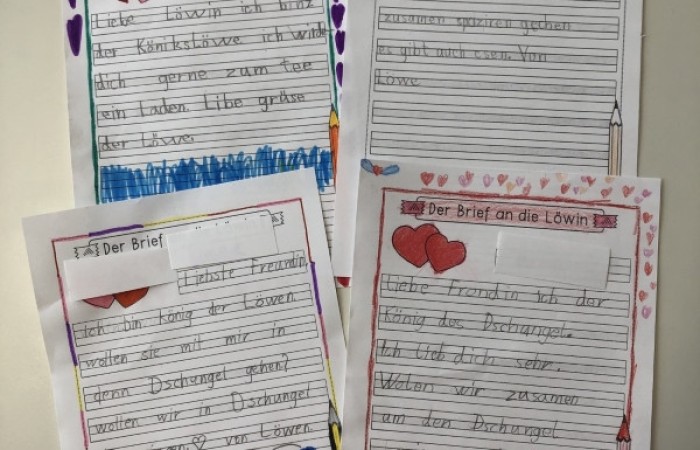 Liebe Löwin ich binz
der Könikslöwe. ich würde
dich gerne zum tee
ein laden. Libe grüse
der Löwe.
zusamen spaziren gechen
es gibt auch esen. Von
Löwe
Der Brief
Liebste Freundin
Ich bin könig der Löwen.
wollen sie mit mir in
denn Dschungel gehen?
wollten wir in Dschungel
von Löwen.
Der Brief an die Löwin
Liebe Frondin Ich dar
König das Dschangel.
Ich lieb dich sehr.
Wolen wir zusamen
um den Dschungel